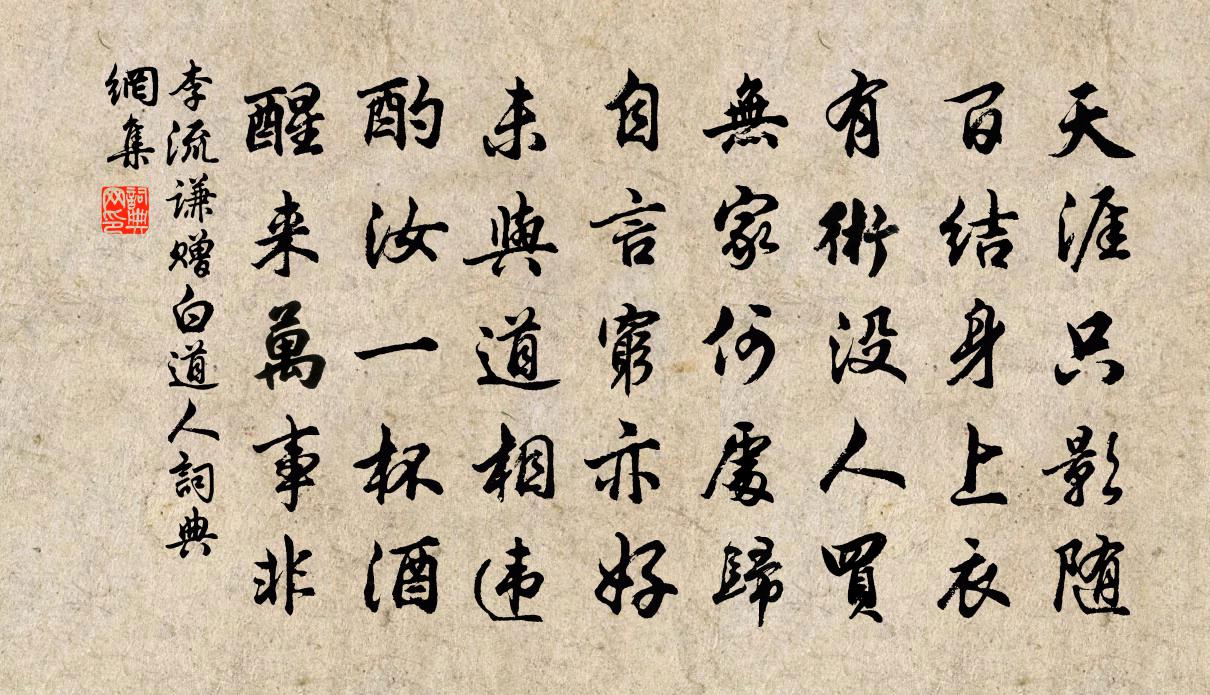 天涯只影随
百结身上衣
有術没人買
無家何處歸
自言窮亦好
未與道相违
酌汝一杯酒
醒来萬事非
李流谦赠白道人詞典
網集
詞典
网印